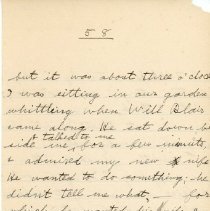 58
but it was about three o'cloc
I was sitting in our garden
whittling when Will Blair
came along. He sat down be
& talked to me
side me, for a few minuts,
& admired my new knife
He wanted to do something; he
didn't tell me what, - for
which he wanted his